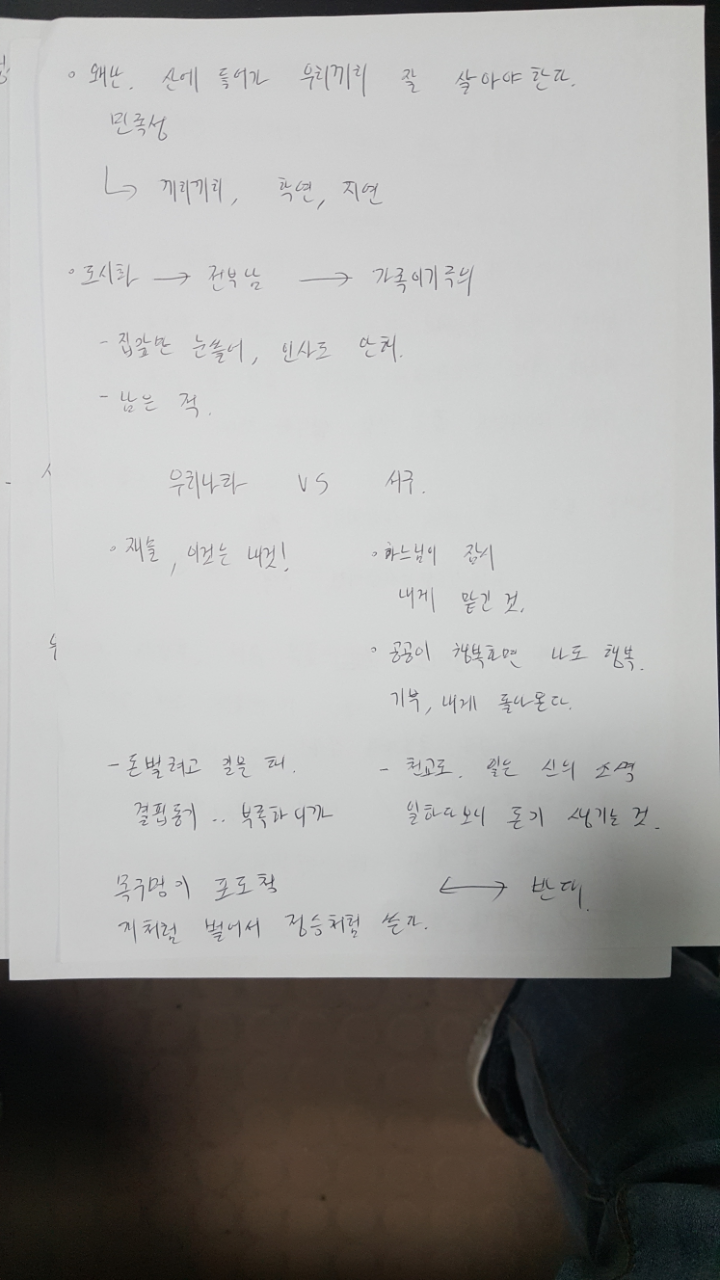 ◦ 왜난. 산에 들어가 우리끼리 잘 살아야 한다.
민족성
↳ 끼리끼리, 학연, 지연
◦ 도시화 → 전부남 → 가족이기주의
- 집값만 눈쏠려, 인사도 안해.
- 남은 적.
우리나라 VS 서구.
◦ 재물, 이것은 내것!
◦ 하느님이 잠시
내게 맡긴 것.
◦ 공공이 행복하면 나도 행복.
기부, 내게 돌아온다.
- 돈벌려고 일할 때.
결핍동기 .. 부족하니까
- 천교도. 일은 신의 소역
일하다보니 돈이 생기는 것.
목구멍이 포도청
개처럼 벌어서 정승처럼 쓴다.
↔ 반대.